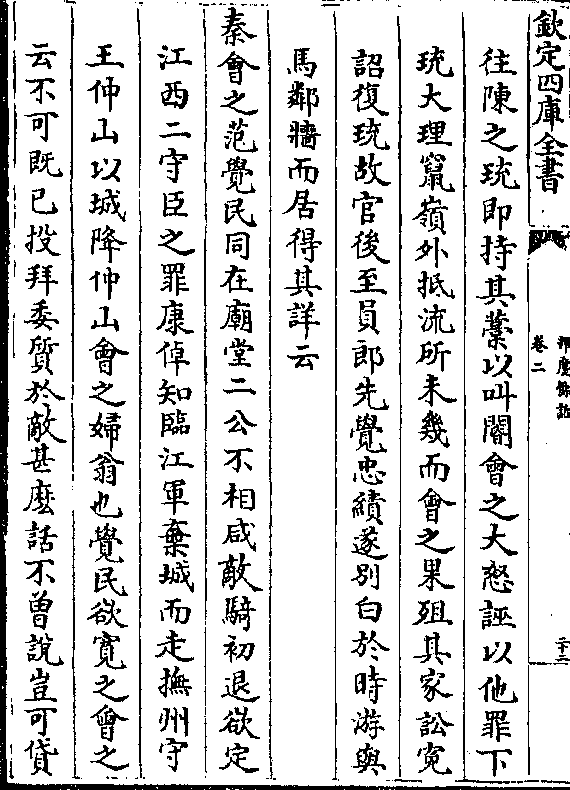 欽定四庫全書
揮麈餘話
卷二
二十三
往陳之珫即持其藁以叫閽會之大怒誣以他罪下
珫大理竄嶺外抵流所未幾而會之果殂其家訟寃
詔復珫故官後至員郎先覺忠績遂別白於時游與
馬鄰牆而居得其詳云
秦會之范覺民同在廟堂二公不相咸敵騎初退欲定
江西二守臣之罪康倬知臨江軍棄城而走撫州守
王仲山以城降仲山會之婦翁也覺民欲寛之會之
云不可既已投拜委質於敵甚麽話不曽說豈可貸